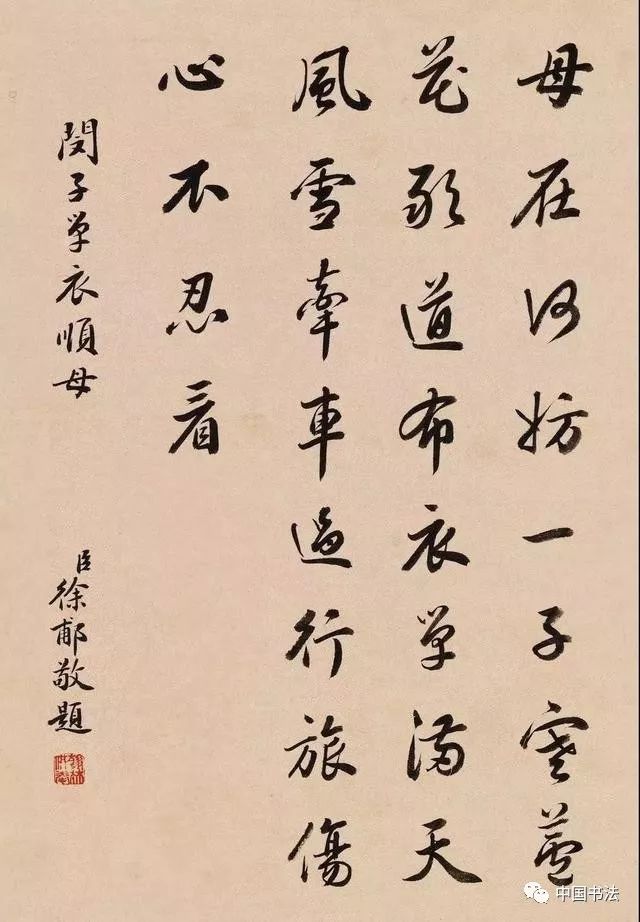 母在何妨一子寒蘆
花敢道布衣單滿天
風雪牽車過行旅傷
心不忍看
閔子單衣順母
臣徐郙敬題
中国书法